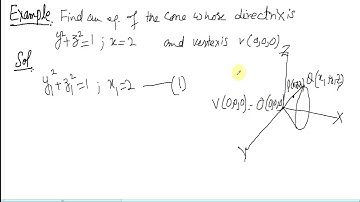 Example: Find an eq. of the cone whose directrix is
y²+z²=1 ; x=2 and vertex is v(0,0,0)
Sol.
y₁²+z₁²=1 ; x₁=2 —— (1)
Z
V(0,0,0)=O(0,0,0)
X
Y